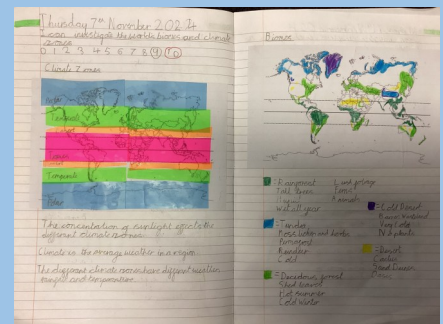 Thursday 7th November 2024
I can investigate the worlds biomes and climate
zones
0 1 2 3 4 5 6 7 8 9 10
Climate Zones
Polar
Temperate
Temperate
Polar
The concentration of sunlight effects the
different climate zones.
Climate is the average weather in a region.
The different climate zones have different weather
ranges and temperature.
Biomes
= Rainforest
Tall trees
Humid
Wet all year
Lush foliage
Animals
= Tundra
Moss lichen and herbs
Permafrost
Reindeer
Cold
= Deciduous forest
Shed leaves
Hot summer
Cold winter
= Cold Desert
Very cold
No plants
= Desert
Cactus
Sand Dunes